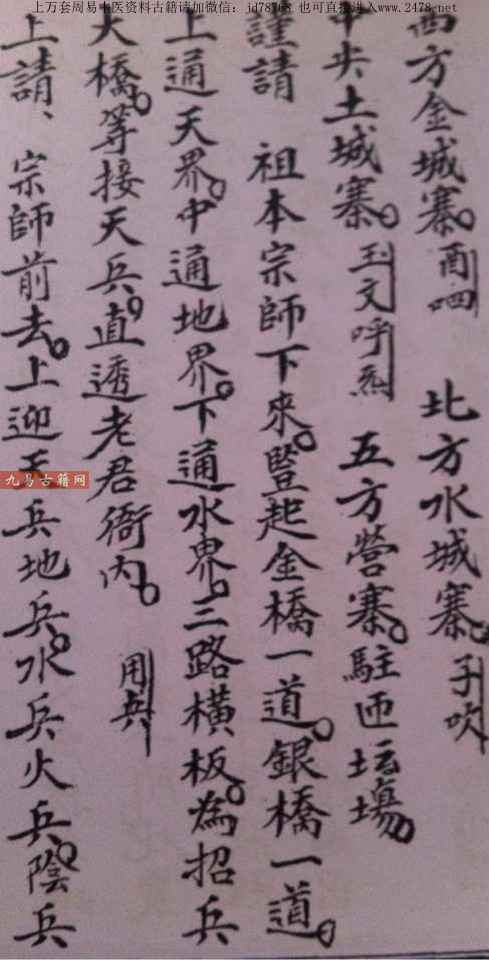 上万套周易中医资料古籍请加微信:jd78768 也可直接进入www.2478-net
西方金城寨。酉呬 北方水城寨。子吹
中央土城寨。玉文呼炁 五方營寨。駐匝坛場。
謹請 祖本宗師下來。豎起金橋一道。銀橋一道。
上通天界。中通地界。下通水界。三路橫板。為招兵
大橋。等接天兵。直透老君衙內。 用兵
上請、宗師前去。上迎 兵地兵。水兵火兵。陰兵
九易古籍网